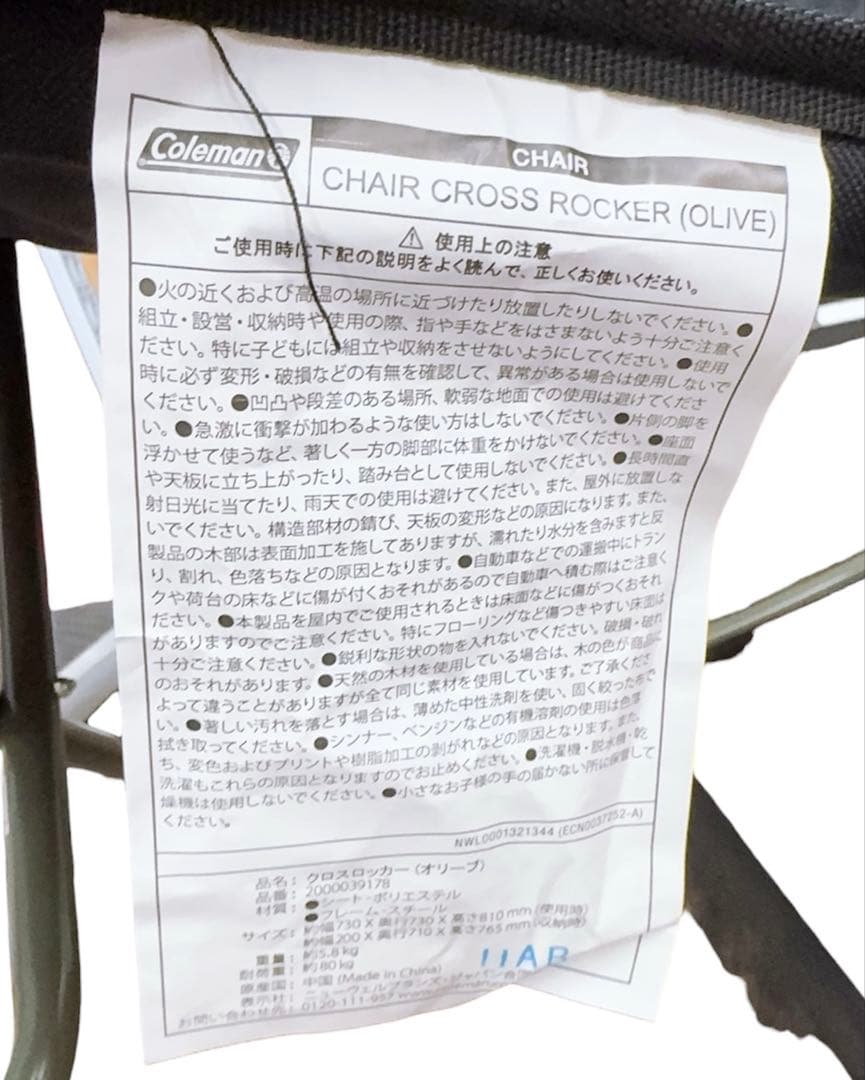 Coleman
CHAIR
CHAIR CROSS ROCKER (OLIVE)
⚠ 使用上の注意
ご使用時に下記の説明をよく読んで、正しくお使いください。
●火の近くおよび高温の場所に近づけたり放置したりしないでください。●
組立・設営・収納時や使用の際、指や手などをはさまないよう十分ご注意く
ださい。特に子どもには組立や収納をさせないようにしてください。●使用
時に必ず変形・破損などの有無を確認して、異常がある場合は使用しないで
ください。●凹凸や段差のある場所、軟弱な地面での使用は避けてくださ
い。●急激に衝撃が加わるような使い方はしないでください。●片側の脚を
浮かせて使うなど、著しく一方の脚部に体重をかけないでください。●座面
や天板に立ち上がったり、踏み台として使用しないでください。●長時間直
射日光に当てたり、雨天での使用は避けてください。また、屋外に放置しな
いでください。構造部材の錆び、天板の変形などの原因になります。また、
製品の木部は表面加工を施してありますが、濡れたり水分を含みますと反
り、割れ、色落ちなどの原因となります。●自動車などでの運搬中にトラン
クや荷台の床などに傷が付くおそれがあるので自動車へ積む際はご注意く
ださい。●本製品を屋内でご使用されるときは床面などに傷がつくおそれ
がありますのでご注意ください。特にフローリングなど傷つきやすい床面は
十分ご注意ください。●鋭利な形状の物を入れないでください。破損・破れ
のおそれがあります。●天然の木材を使用している場合は、木の色が商品に
よって違うことがありますが全て同じ素材を使用しています。ご了承くださ
い。●著しい汚れを落とす場合は、薄めた中性洗剤を使い、固く絞った布で
拭き取ってください。●シンナー、ベンジンなどの有機溶剤の使用は色落
ち、変色およびプリントや樹脂加工の剥がれなどの原因となります。また、
洗濯もこれらの原因となりますのでお止めください。●洗濯機・脱水機・乾
燥機は使用しないでください。●小さなお子様の手の届かない所に保管して
ください。
NWL0001321344 (ECN0037252-A)
品名: クロスロッカー(オリーブ)
品番: 2000039178
材質: ●シート・ポリエステル
●フレーム・スチール
サイズ: 約幅730×奥行730×高さ810mm(使用時)
約幅200×奥行710×高さ765mm(収納時)
重量: 約5.8kg
耐荷重: 約80kg
原産国: 中国 (Made in China)
表示社: ニューウェルブランズ・ジャパン合同
お問い合わせ先: 0120-111-957
11AB